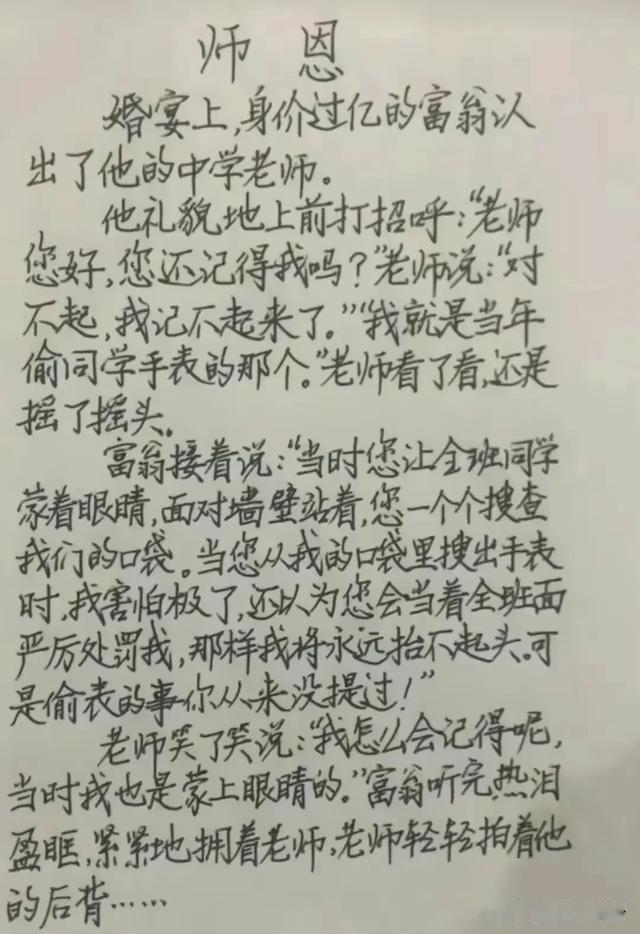 师 恩
婚宴上，身价过亿的富翁认
出了他的中学老师。
他礼貌地上前打招呼：“老师
您好，您还记得我吗？”老师说：“对
不起，我记不起来了。”“我就是当年
偷同学手表的那个。”老师看了看，还是
摇了摇头。
富翁接着说：“当时您让全班同学
蒙着眼睛，面对墙壁站着，您一个个搜查
我们的口袋。当您从我的口袋里搜出手表
时，我害怕极了，还以为您会当着全班面
严厉处罚我，那样我将永远抬不起头。可
是偷表的事你从来没提过！”
老师笑了笑说：“我怎么会记得呢，
当时我也是蒙上眼睛的。”富翁听完，热泪
盈眶，紧紧地拥着老师，老师轻轻拍着他
的后背……